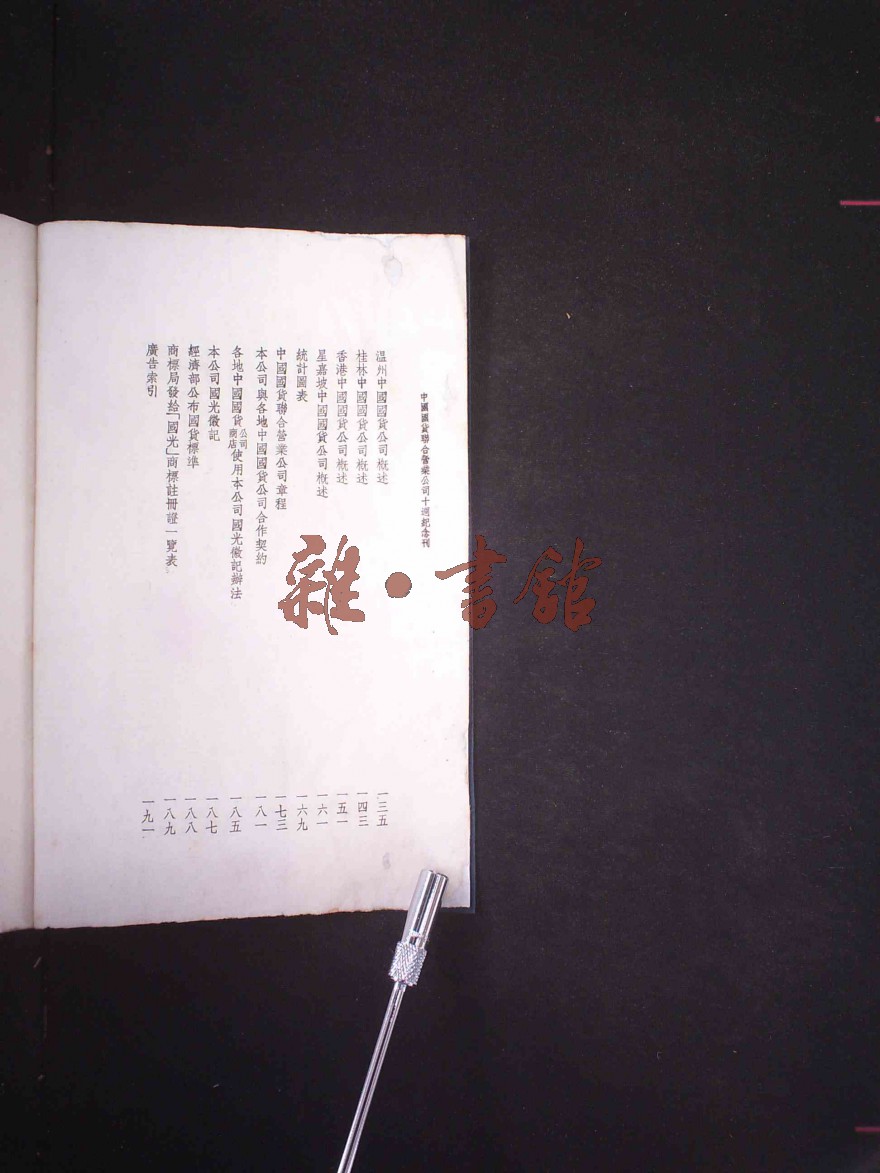 中國國貨聯合營業公司十週紀念刊
溫州中國國貨公司概述 一三五
桂林中國國貨公司概述 一四三
香港中國國貨公司概述 一五一
星嘉坡中國國貨公司概述 一六一
統計圖表 一六九
中國國貨聯合營業公司章程 一七三
本公司與各地中國國貨公司合作契約 一八一
各地中國國貨公司商店使用本公司國光徽記辦法 一八五
本公司國光徽記 一八七
經濟部公布國貨標準 一八八
商標局發給「國光」商標註冊證一覽表 一八九
廣告索引 一九一
雜·書館